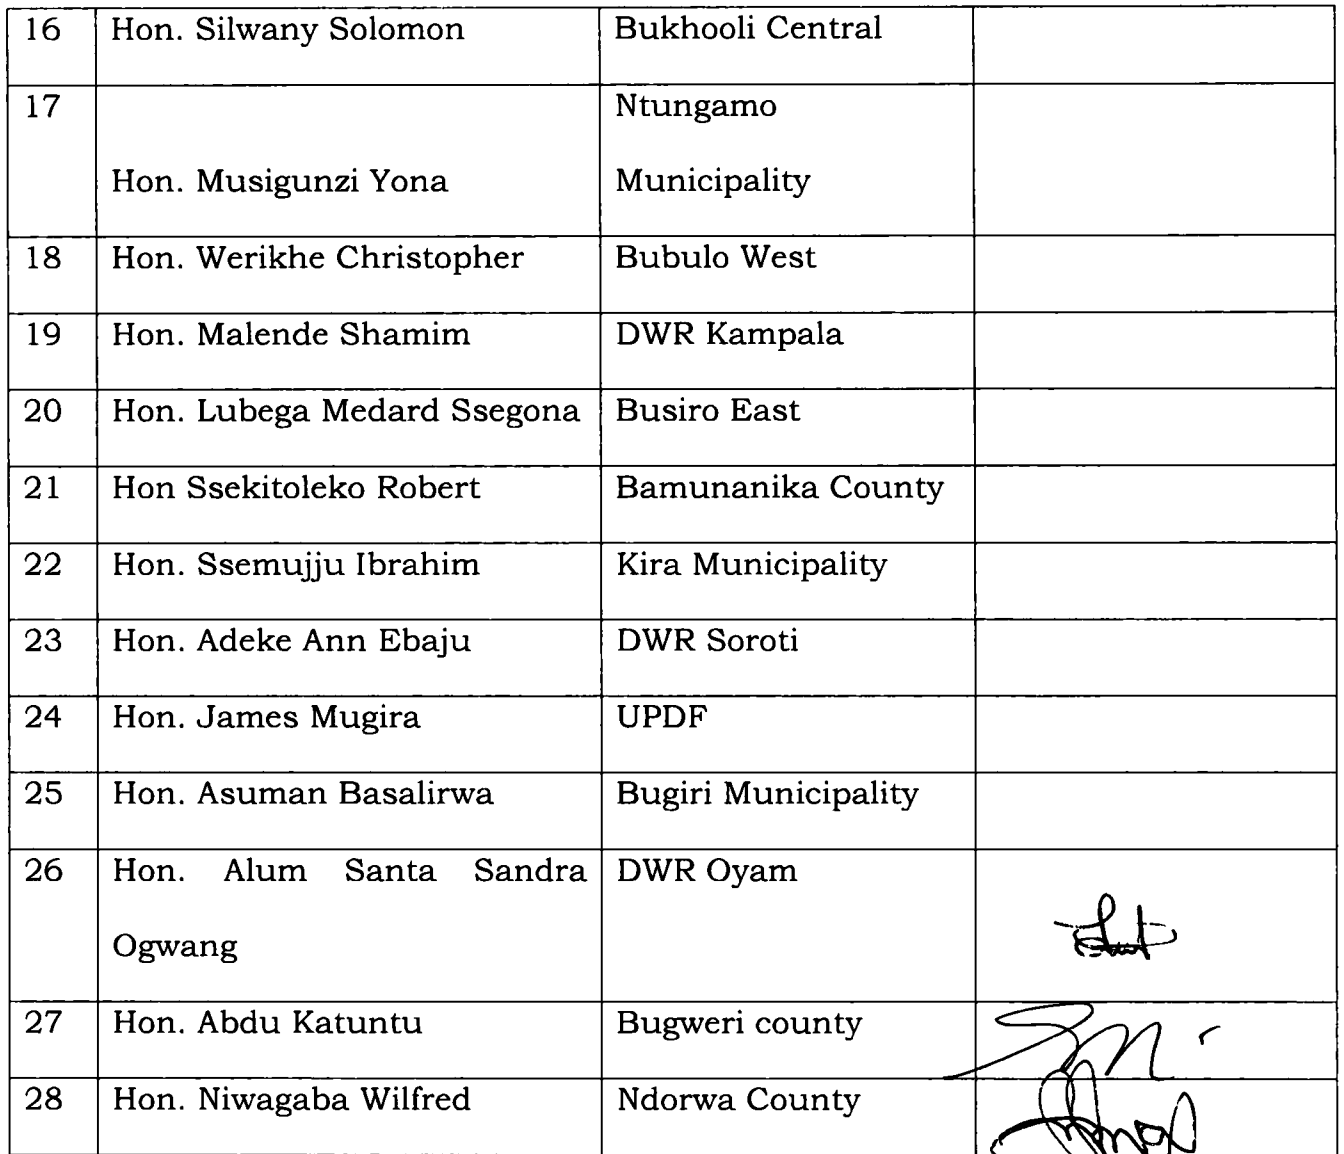 16 Hon. Silwany Solomon Bukhooli Central
17 Ntungamo
Hon. Musigunzi Yona Municipality
18 Hon. Werikhe Christopher Bubulo West
19 Hon. Malende Shamim DWR Kampala
20 Hon. Lubega Medard Ssegona Busiro East
21 Hon Ssekitoleko Robert Bamunanika County
22 Hon. Ssemujju Ibrahim Kira Municipality
23 Hon. Adeke Ann Ebaju DWR Soroti
24 Hon. James Mugira UPDF
25 Hon. Asuman Basalirwa Bugiri Municipality
26 Hon. Alum Santa Sandra DWR Oyam
Ogwang
27 Hon. Abdu Katuntu Bugweri county
28 Hon. Niwagaba Wilfred Ndorwa County